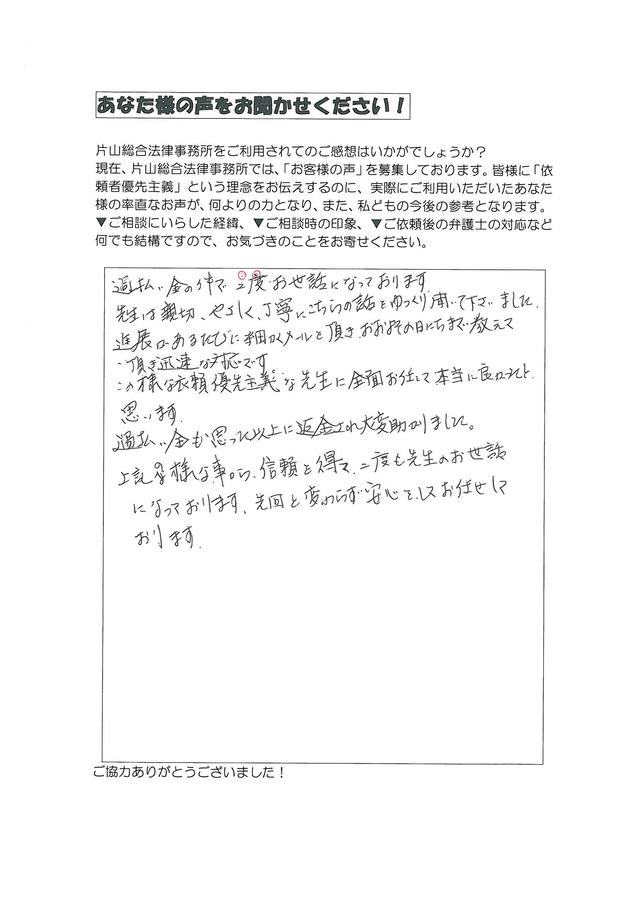 あなた様の声をお聞かせください！
片山総合法律事務所をご利用されてのご感想はいかがでしょうか？
現在、片山総合法律事務所では、「お客様の声」を募集しております。皆様に「依
頼者優先主義」という理念をお伝えするのに、実際にご利用いただいたあなた
様の率直なお声が、何よりの力となり、また、私どもの今後の参考となります。
▼ご相談にいらした経緯、▼ご相談時の印象、▼ご依頼後の弁護士の対応など
何でも結構ですので、お気づきのことをお寄せください。
過払い金の件で二度お世話になっております。
先生は親切、やさしく、丁寧にこちらの話をゆっくり聞いて下さいました。
進展があるたびに細かくメールを頂き、おおよその日にちまで教えて
頂き迅速な対応です
この様な依頼優先主義な先生に全面お任せて本当に良かったと
思います。
過払い金も思った以上に返金され大変助かりました。
上記の様な事から、信頼を得て、二度も先生のお世話
になっております。先回と変わらず安心をしてお任せして
おります。
ご協力ありがとうございました！